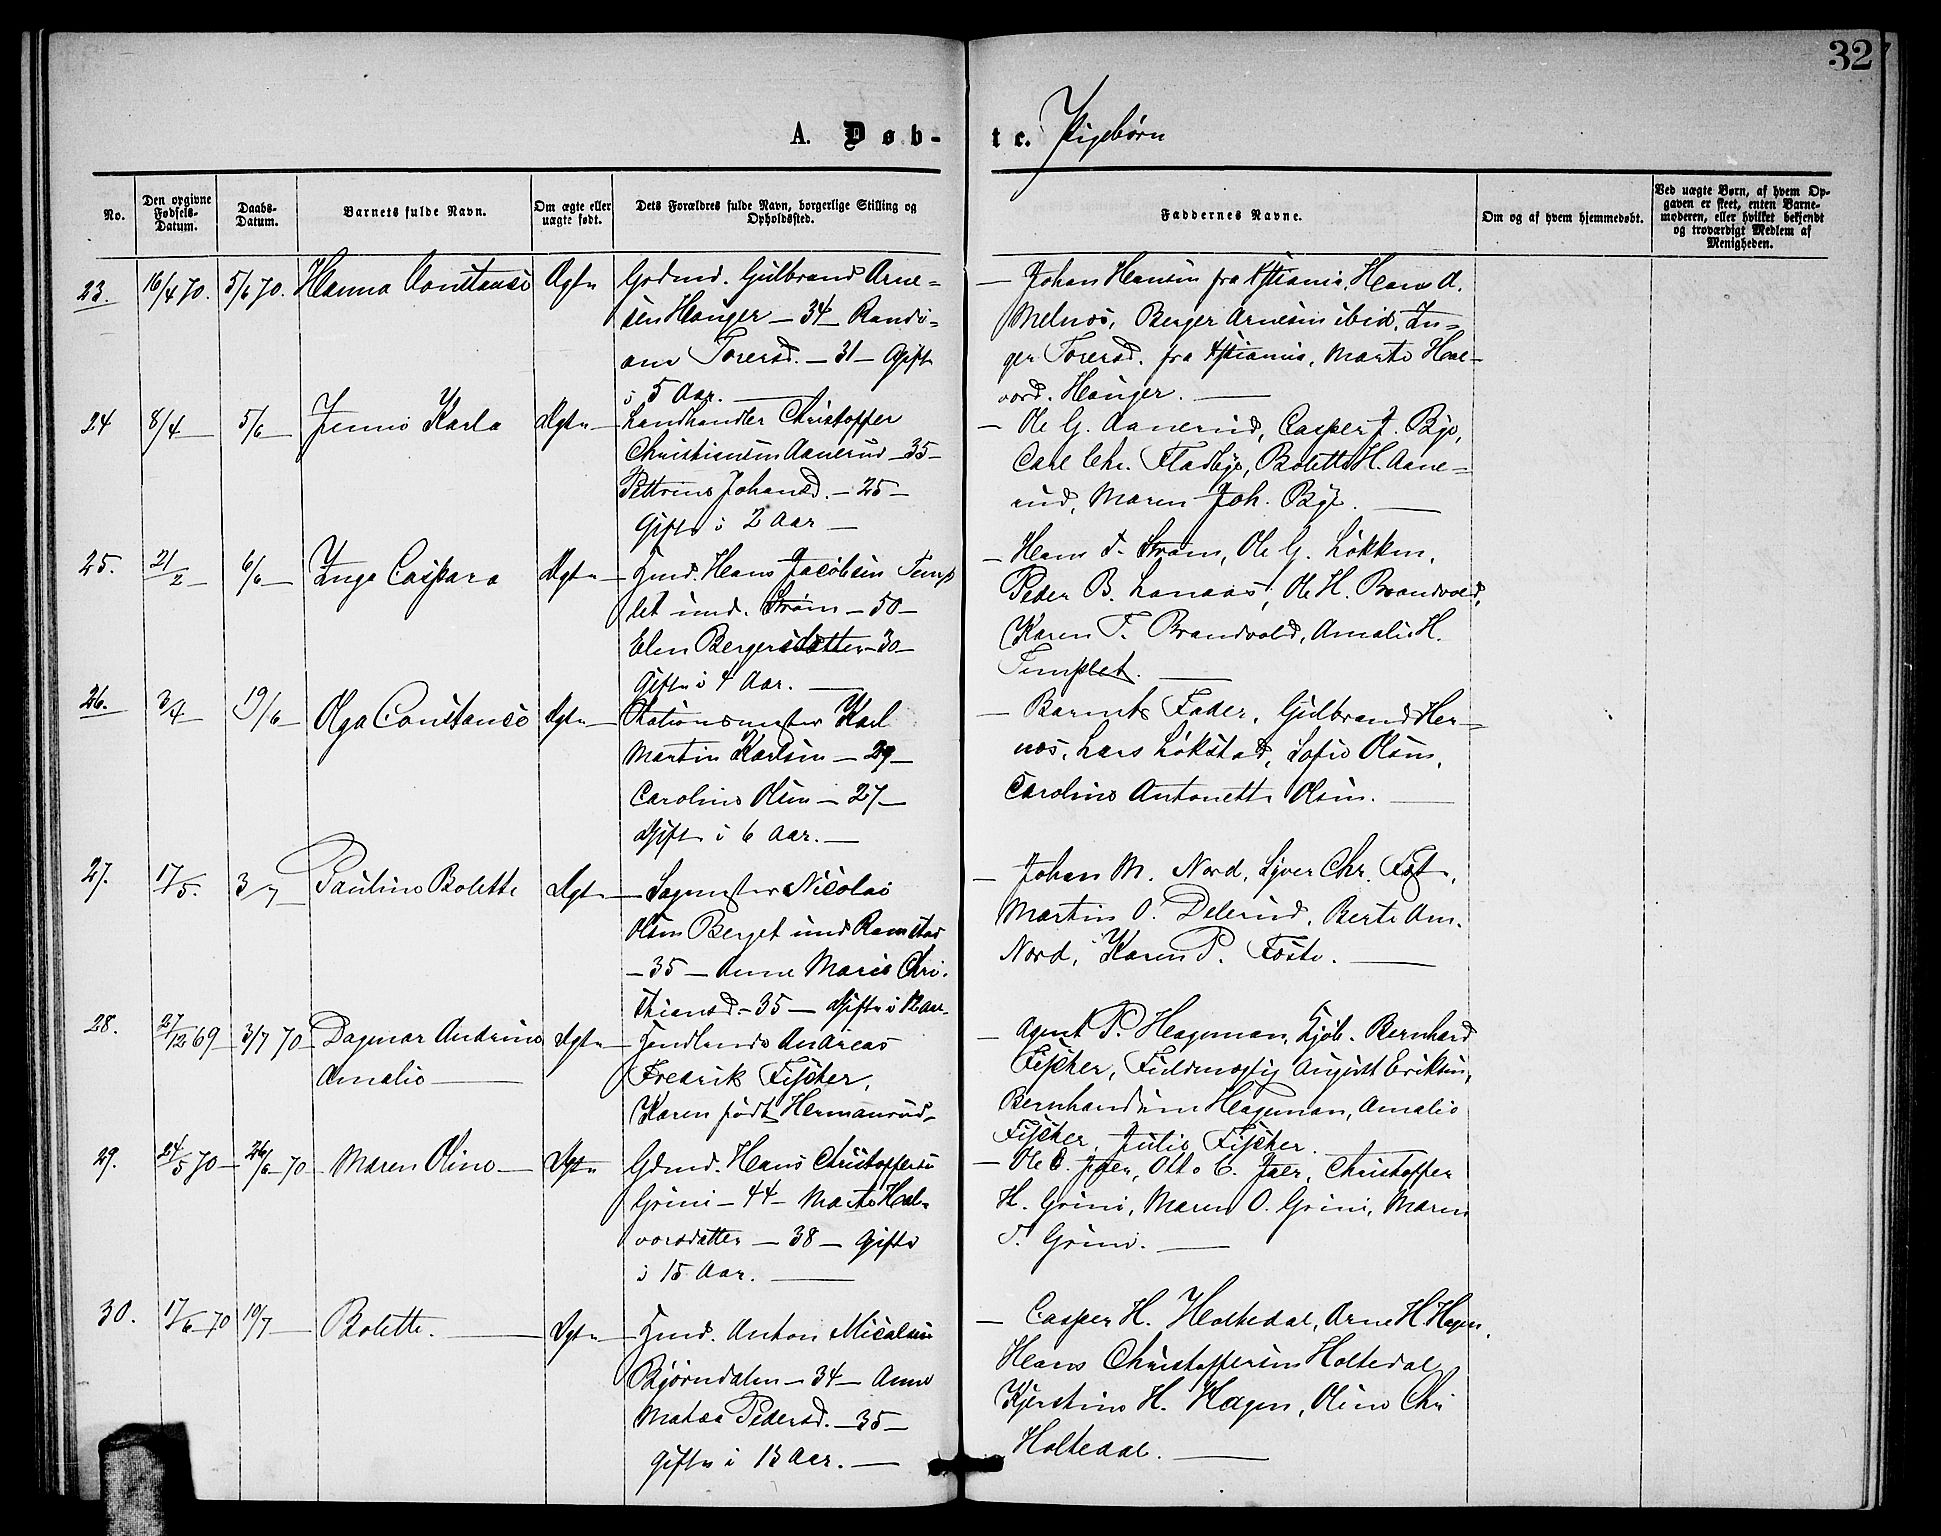 32
A. Døb-
te. Pigebørn
No.
Den opgivne Fødsels-Datum.
Daabs-Datum.
Barnets fulde Navn.
Om ægte eller uægte født.
Dets Forældres fulde Navn, borgerlige Stilling og Opholdssted.
Faddernes Navne.
Om og af hvem hjemmedøbt.
Ved uægte Børn, af hvem Opgaven er skeet, enten Barnemoderen, eller hvilket bekjendt og troværdigt Medlem af Menigheden.
23. 16/4 70. 5/6 70. Hanna Constanse Ægte Gaardmd. Gulbrand Arne=
sen Hauger — 34 — Randi-
ane Torersd. — 31 — Gift
i 5 Aar. —
— Johan Hansen fra Xstiania, Hans A.
Melnæs, Berger Arnesen ibid, In=
ger Torersd. fra Xstiania, Marte Hal-
vord. Hauger. —
24 8/4 — 5/6 — Jenni Karla Ægte — Landhandler Christoffer
Christiansen Aanerud — 35 —
Pettrine Johansd. — 25 —
Gifte i 2 Aar —
— Ole G. Aanerud, Casper J. Bye,
Carl Chr. Fladbye, Bolette H. Aane=
rud, Maren Joh. Bye. —
25. 21/2 — 6/6 — Inga Caspara Ægte — Hmd. Hans Jacobsen Temp
let und. Strøm — 50 —
Elen Bergersdatter — 30 —
Gifte i 4 Aar. —
— Hans T. Strøm, Ole G. Løkken,
Peder B. Lanaas, Ole H. Brandvold,
Karen T. Brandvold, Amalie H.
Templet. —
26. 3/4 — 19/6 — Olga Constanse Ægte — Stationsmester Karl
Martin Karlsen — 29 —
Caroline Olsen — 27 —
Gifte i 6 Aar. —
— Barnets Fader, Gulbrand Her=
næs, Lars Løkstad, Sofie Olsen,
Caroline Antonette Olsen. —
27. 17/5. 3/7 — Pauline Bolette Ægte — Sagmester Nicolai
Olsen Berget und Ramstad
— 35 — Anne Marie Chri-
stiansd — 35 — Gifte i Aar.
— Johan M. Nord, Syver Chr. Fost,
Martin O. Delerud, Berte Am.
Nord, Karen P. Foste. —
28. 27/12 69 — 3/7 70 — Dagmar Andrine
Amalie —
Ægte — Handlende Andreas
Fredrik Fischer,
Karen født Hermansrud —
— Agent P. Hageman, Kjøb. Bernhard
Fischer, Fuldmægtig August Eriksen,
Bernhardine Hageman, Amalie
Fischer, Julie Fischer. —
29. 24/5 70 — 26/6 70 — Maren Oline — Ægte Gdmd. Hans Christoffersen
Grini — 44 — Marte Hal-
vorsdatter — 38 — Gifte
i 15 Aar. —
— Ole C. Jaer, Otto C. Jaer, Christoffer
H. Grini, Maren O. Grini, Maren
T. Grini. —
30. 17/6 70 10/7 — Bolette. — Ægte — Hmd. Anton Micalsen
Bjørndalen — 34 — Anne
Matea Pedersd. — 35 —
Gifte i 13 Aar. —
— Casper H. Holtedal, Arne H. Hagen,
Hans Christoffersen Holtedal
Kjerstine H. Hagen, Oline Chr
Holtedal. —